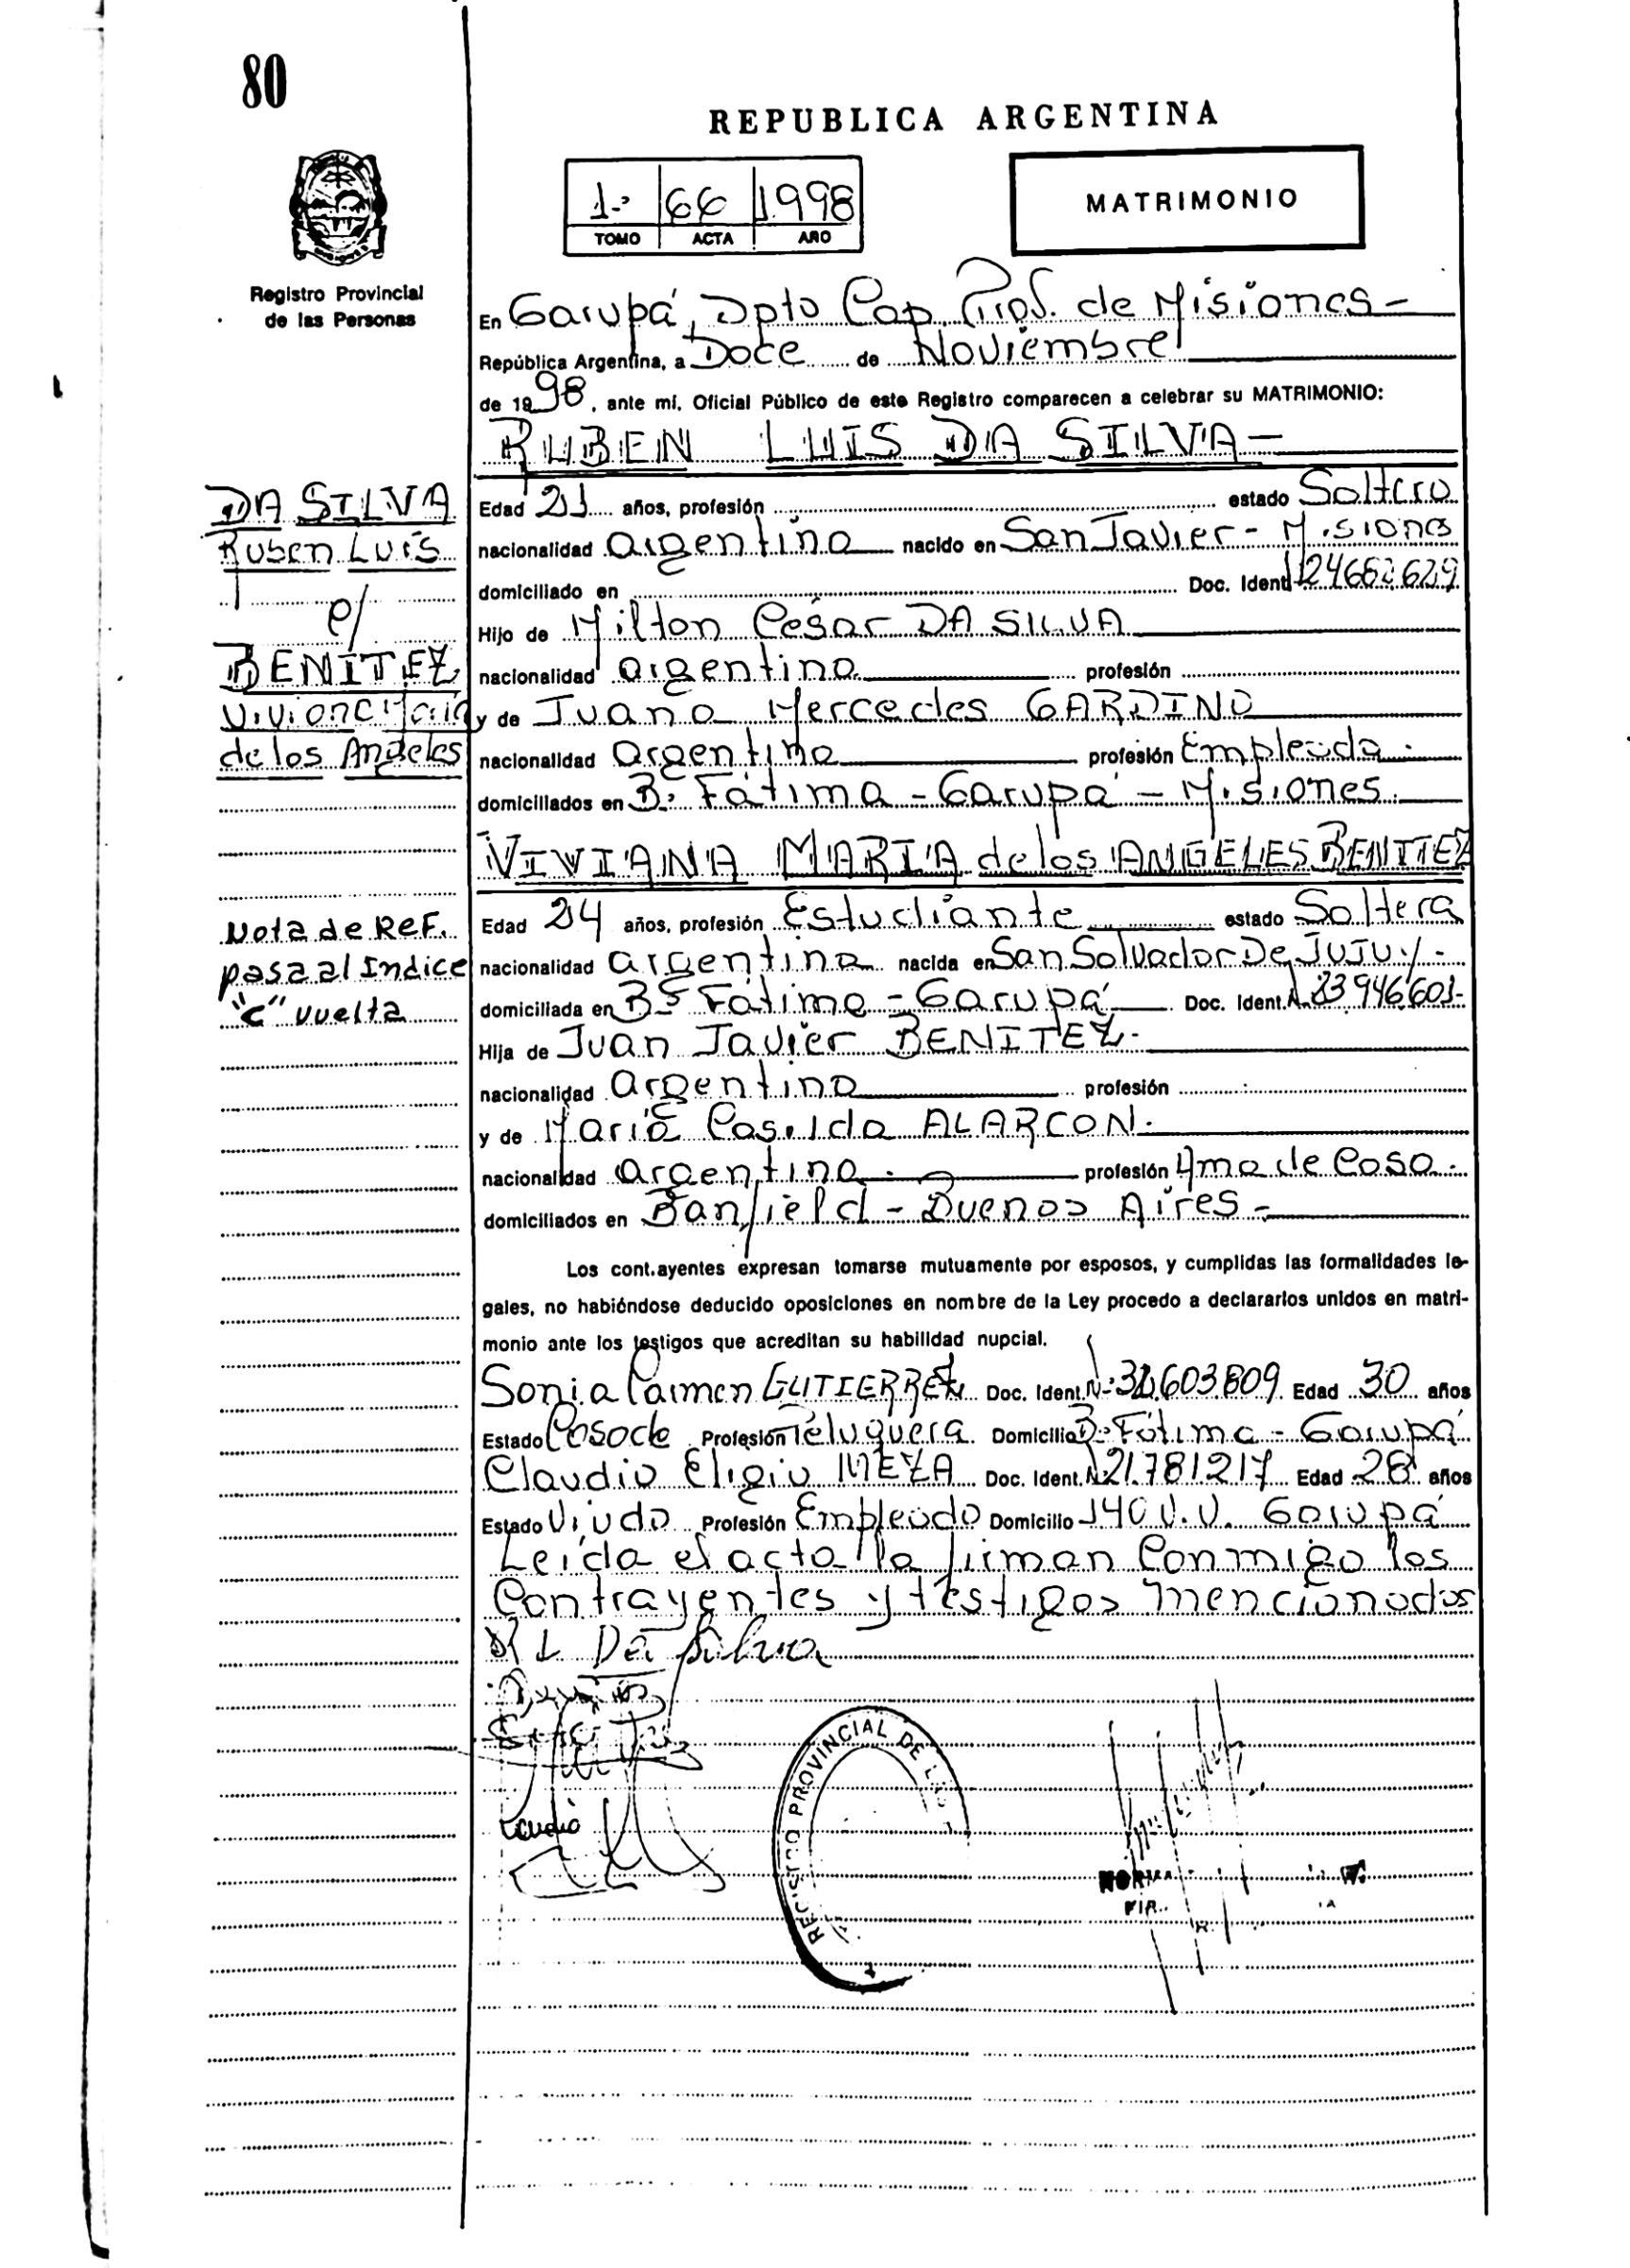 80
REPUBLICA ARGENTINA
1.º 66 1998
TOMO ACTA AÑO
MATRIMONIO
Registro Provincial
de las Personas
En Garupá, Dpto Cap. Prov. de Misiones -
República Argentina, a Doce de Noviembre
de 1998, ante mí, Oficial Público de este Registro comparecen a celebrar su MATRIMONIO:
RUBEN LUIS DA SILVA -
DA SILVA
Ruben Luis
c/
BENITEZ
Viviana María
de los Angeles
Edad 21 años, profesión estado Soltero
nacionalidad argentina nacido en San Javier - Misiones
domiciliado en Doc. Ident.
Hijo de Milton César DA SILVA
nacionalidad argentina profesión
y de Juana Mercedes GARDINO
nacionalidad argentina profesión Empleada.
domiciliados en B: Fátima - Garupá - Misiones.
VIVIANA MARIA de los ANGELES BENITEZ
Nota de Ref.
pasa al Indice
"C" vuelta
Edad 24 años, profesión Estudiante estado Soltera
nacionalidad argentina nacida en San Salvador De JUJUY -
domiciliada en Bº Fátima - Garupá Doc. Ident. N. 23946601-
Hija de Juan Javier BENITEZ.
nacionalidad argentino profesión
y de María Casilda ALARCON.
nacionalidad argentina. profesión Ama de Casa.
domiciliados en Banfield - Buenos Aires -
Los contrayentes expresan tomarse mutuamente por esposos, y cumplidas las formalidades le-
gales, no habiéndose deducido oposiciones en nombre de la Ley procedo a declararlos unidos en matri-
monio ante los testigos que acreditan su habilidad nupcial.
Sonia Carmen GUTIERREZ Doc. Ident. Nº Edad 30 años
Estado Casada Profesión Peluquera Domicilio B: Fátima - Garupá
Claudio Eligio MEZA Doc. Ident. Nº 21.781217 Edad 28 años
Estado Viudo Profesión Empleado Domicilio 140 V.V. Garupá
Leída el acta la firman conmigo los
Contrayentes y testigos mencionados
R L Da Silva
Claudio
REGISTRO PROVINCIAL DE LAS